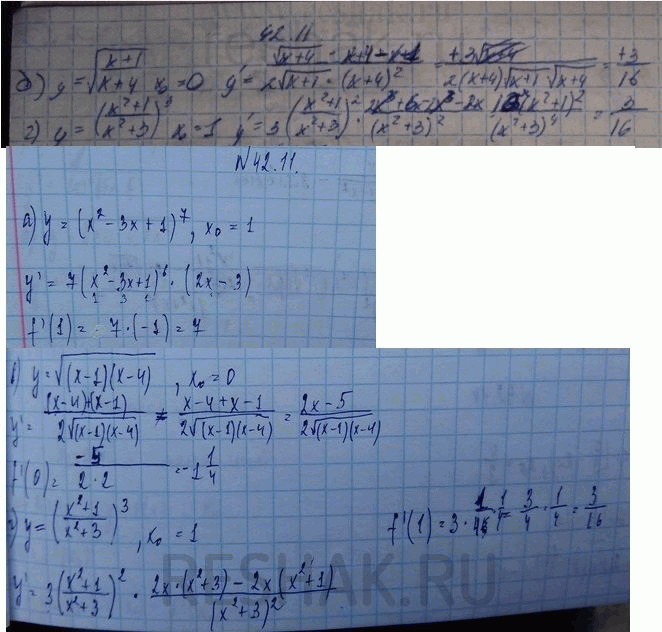 42.11
б) y = √((x+1)/(x+4)) x₀=0 y' = √(x+4) / 2√(x+1) · (x+4-x-1)/(x+4)² = +3 / 2(x+4)√(x+1)·√(x+4) = +3/16
г) y = ((x²+1)/(x²+3))³ x₀=1 y' = 3((x²+1)/(x²+3))² · /(x²+3)² (x²+1)²/(x²+3)⁴ = 3/16
№42.11.
а) y = (x² - 3x + 1)⁷, x₀ = 1
y' = 7(x² - 3x + 1)⁶ · (2x - 3)
1 3 1
f'(1) = 7 · (-1) = 7
в) y = √((x-1)(x-4)), x₀ = 0
y' = (x-4)+(x-1) / 2√((x-1)(x-4)) = x-4+x-1 / 2√((x-1)(x-4)) = 2x-5 / 2√((x-1)(x-4))
f'(0) = -5 / 2·2 = -1 1/4
г) y = ((x²+1)/(x²+3))³, x₀ = 1
f'(1) = 3 · 1/4 · 1/ = 3/4 · 1/4 = 3/16
y' = 3((x²+1)/(x²+3))² · 2x·(x²+3) - 2x(x²+1) / (x²+3)²
RESHAK.RU